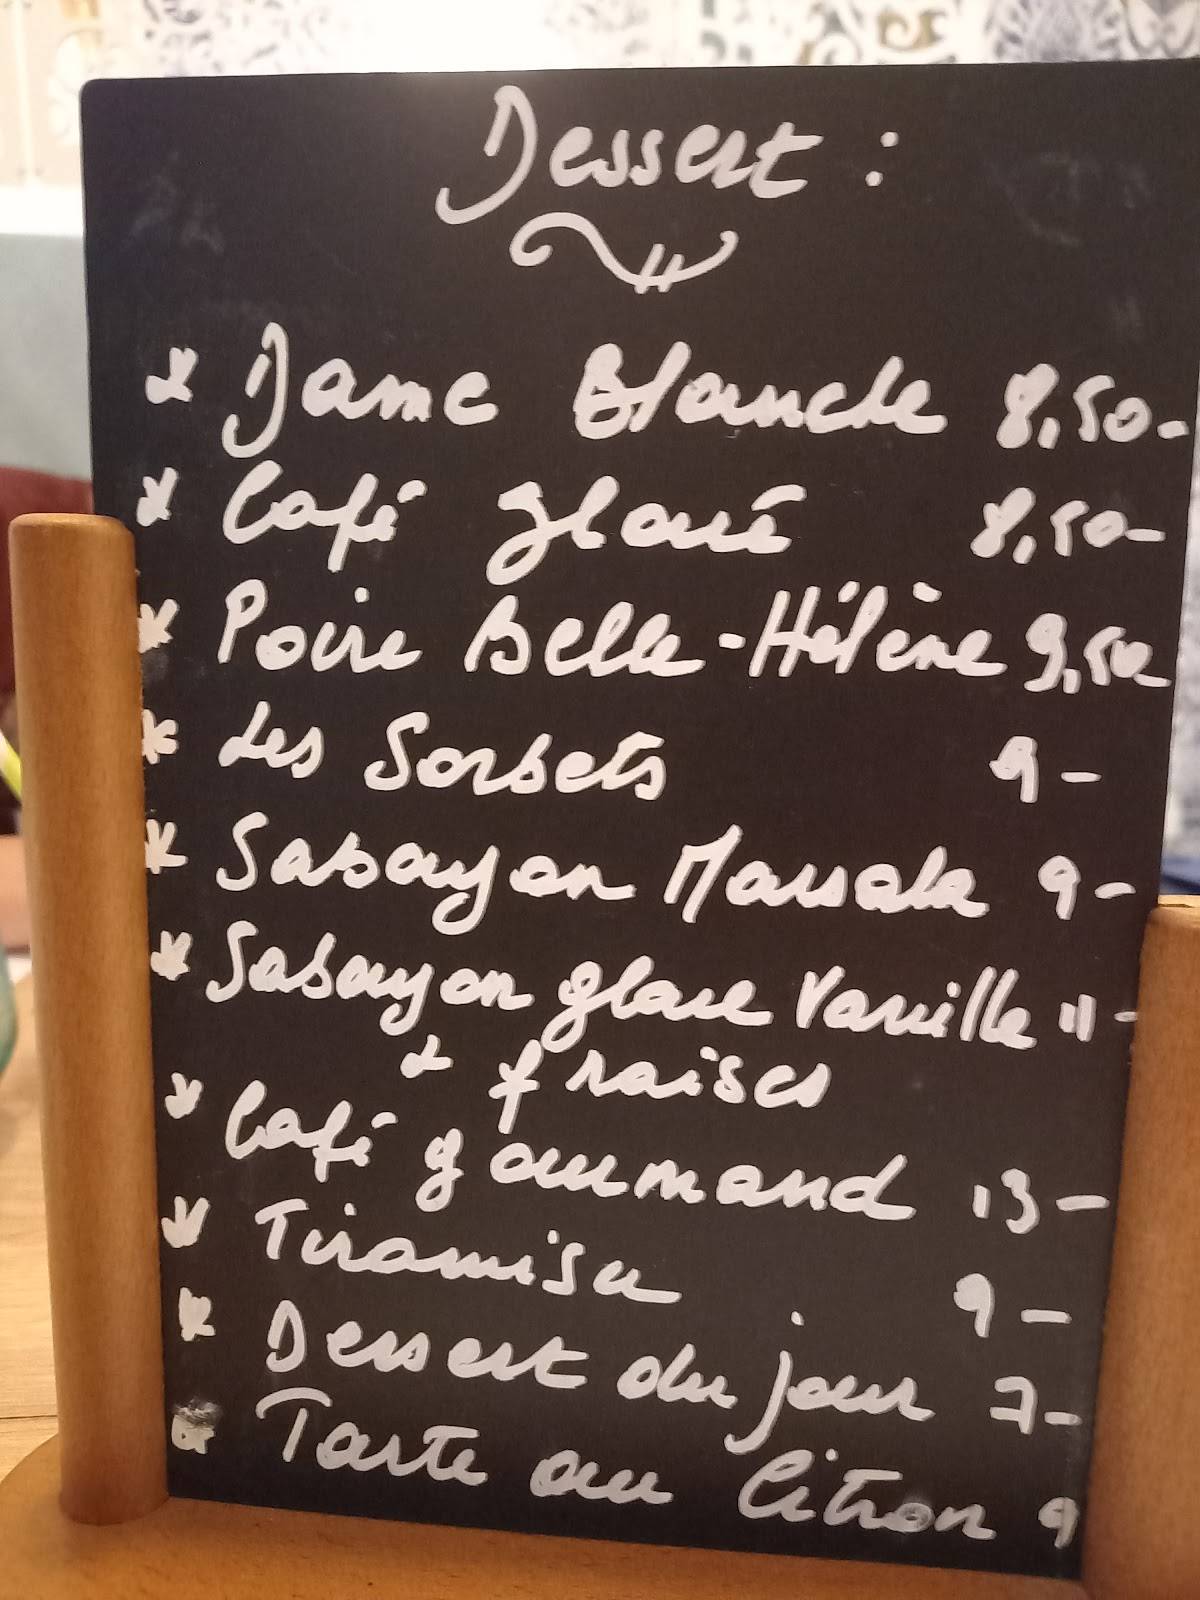 Dessert :
* Dame Blanche 8,50-
* Café glacé 8,50-
* Poire Belle-Hélène 9,50-
* Les Sorbets 9-
* Sabayon Marsala 9-
* Sabayon glace Vanille 11-
& fraises
* Café gourmand 13-
* Tiramisu 9-
* Dessert du jour 7-
* Tarte au Citron 9